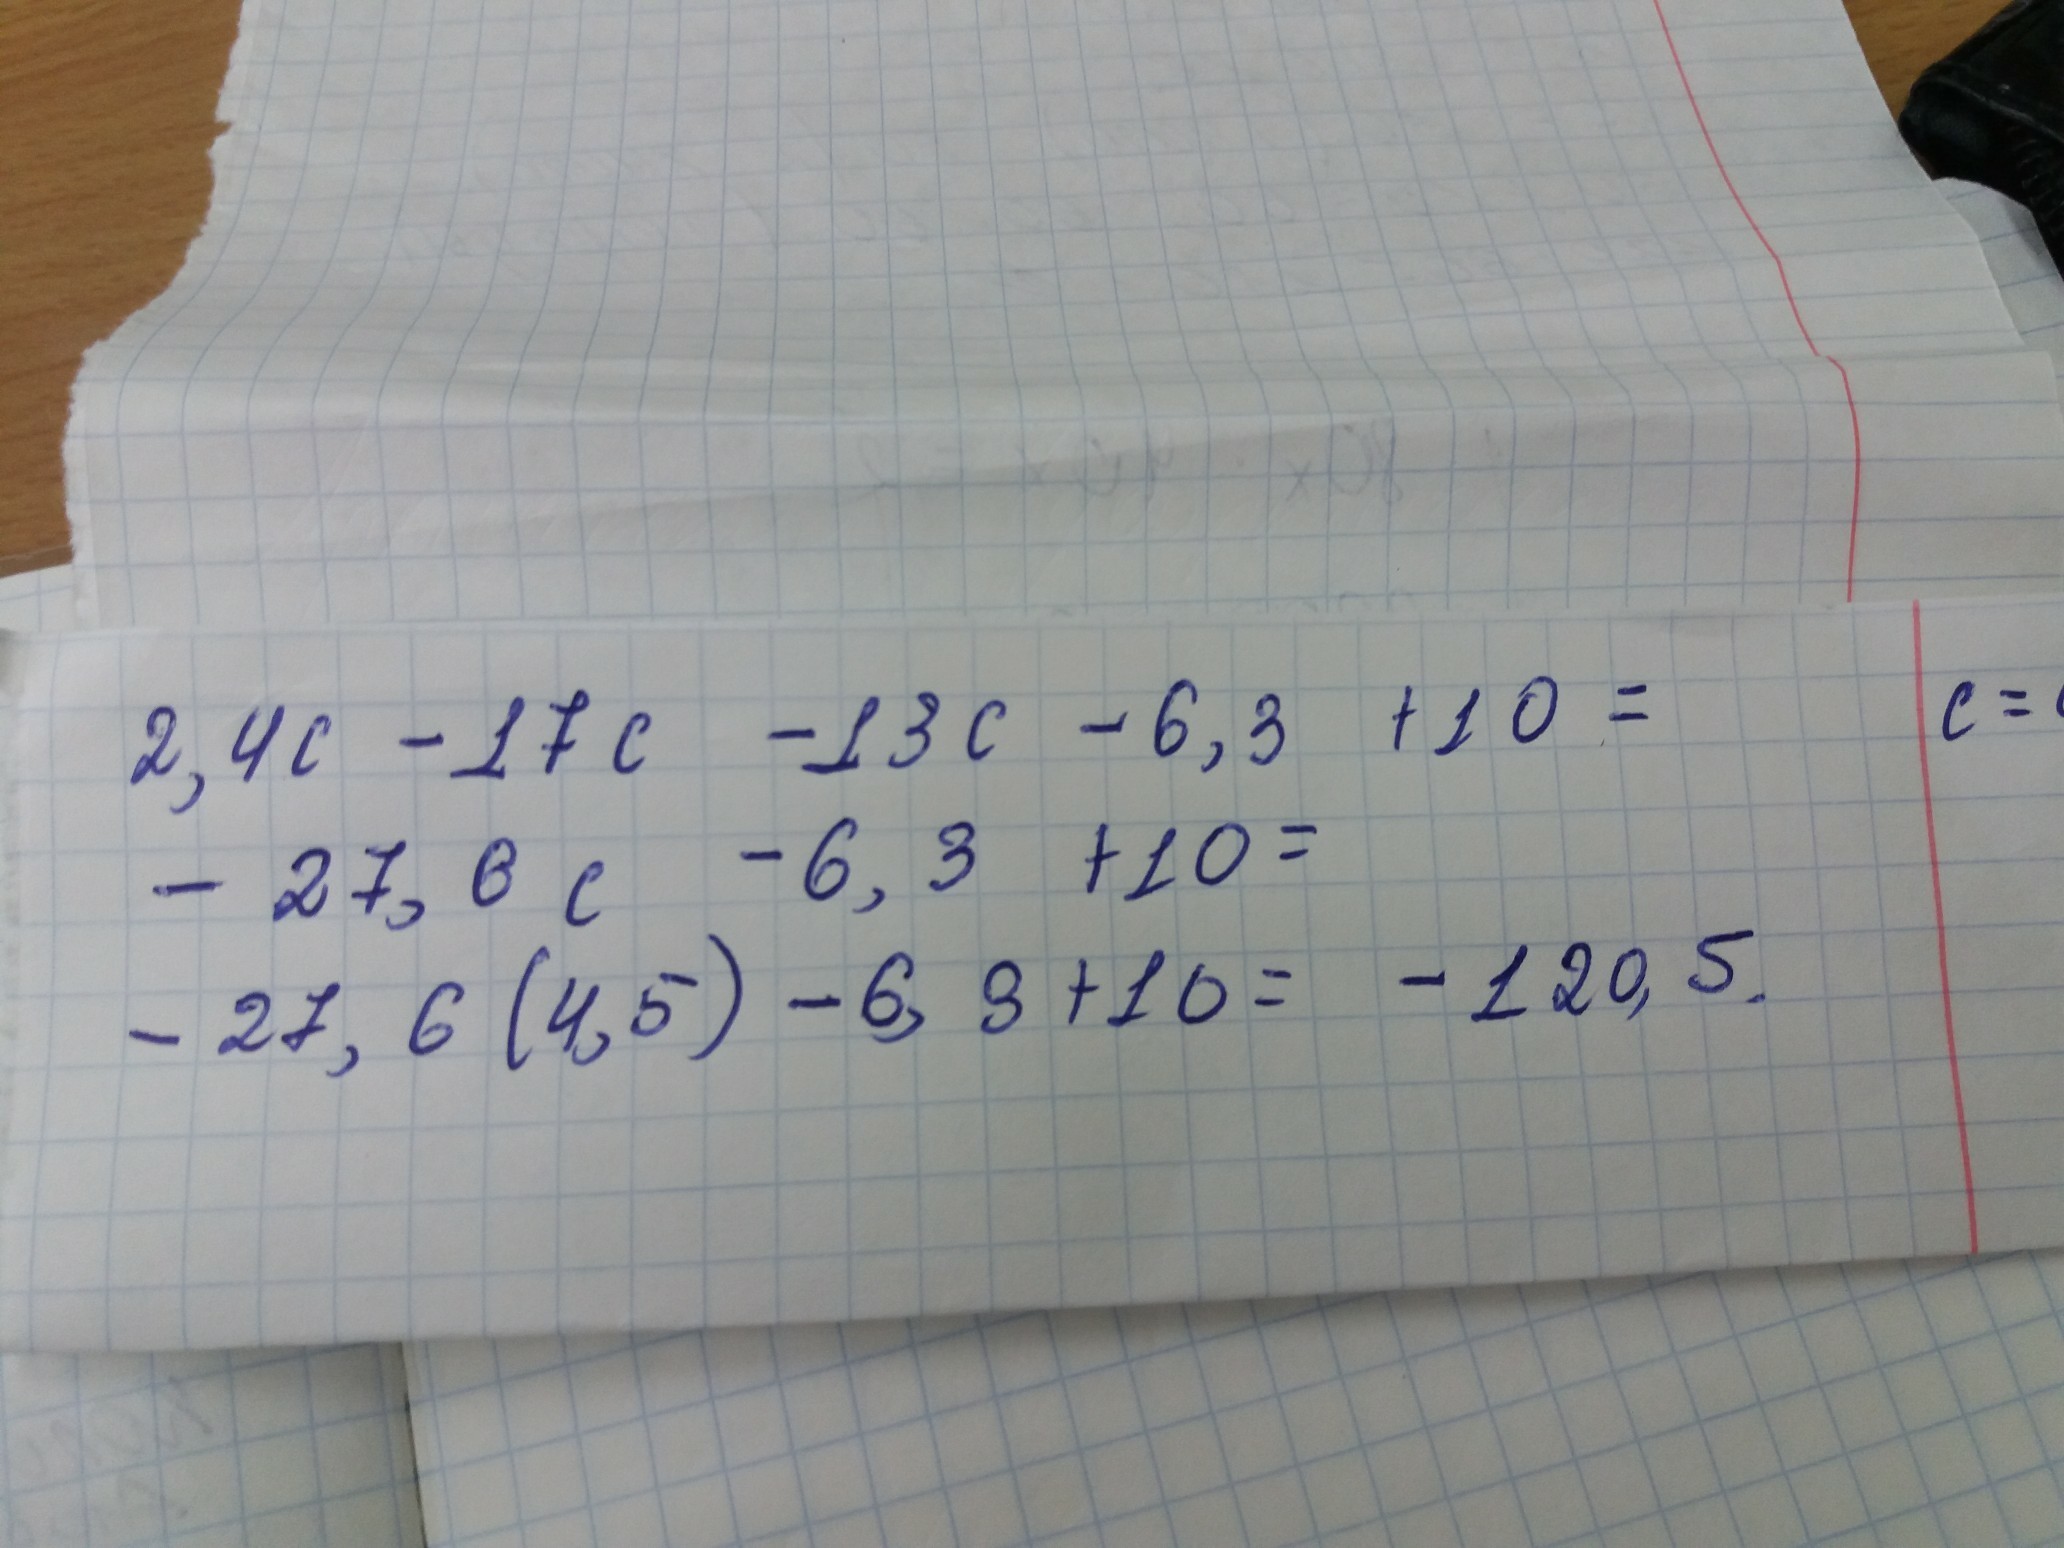 2,4c -17c -13c -6,3 +10= c=
- 27,6 c -6,3 +10=
- 27,6 (4,5) -6,3+10= -120,5.